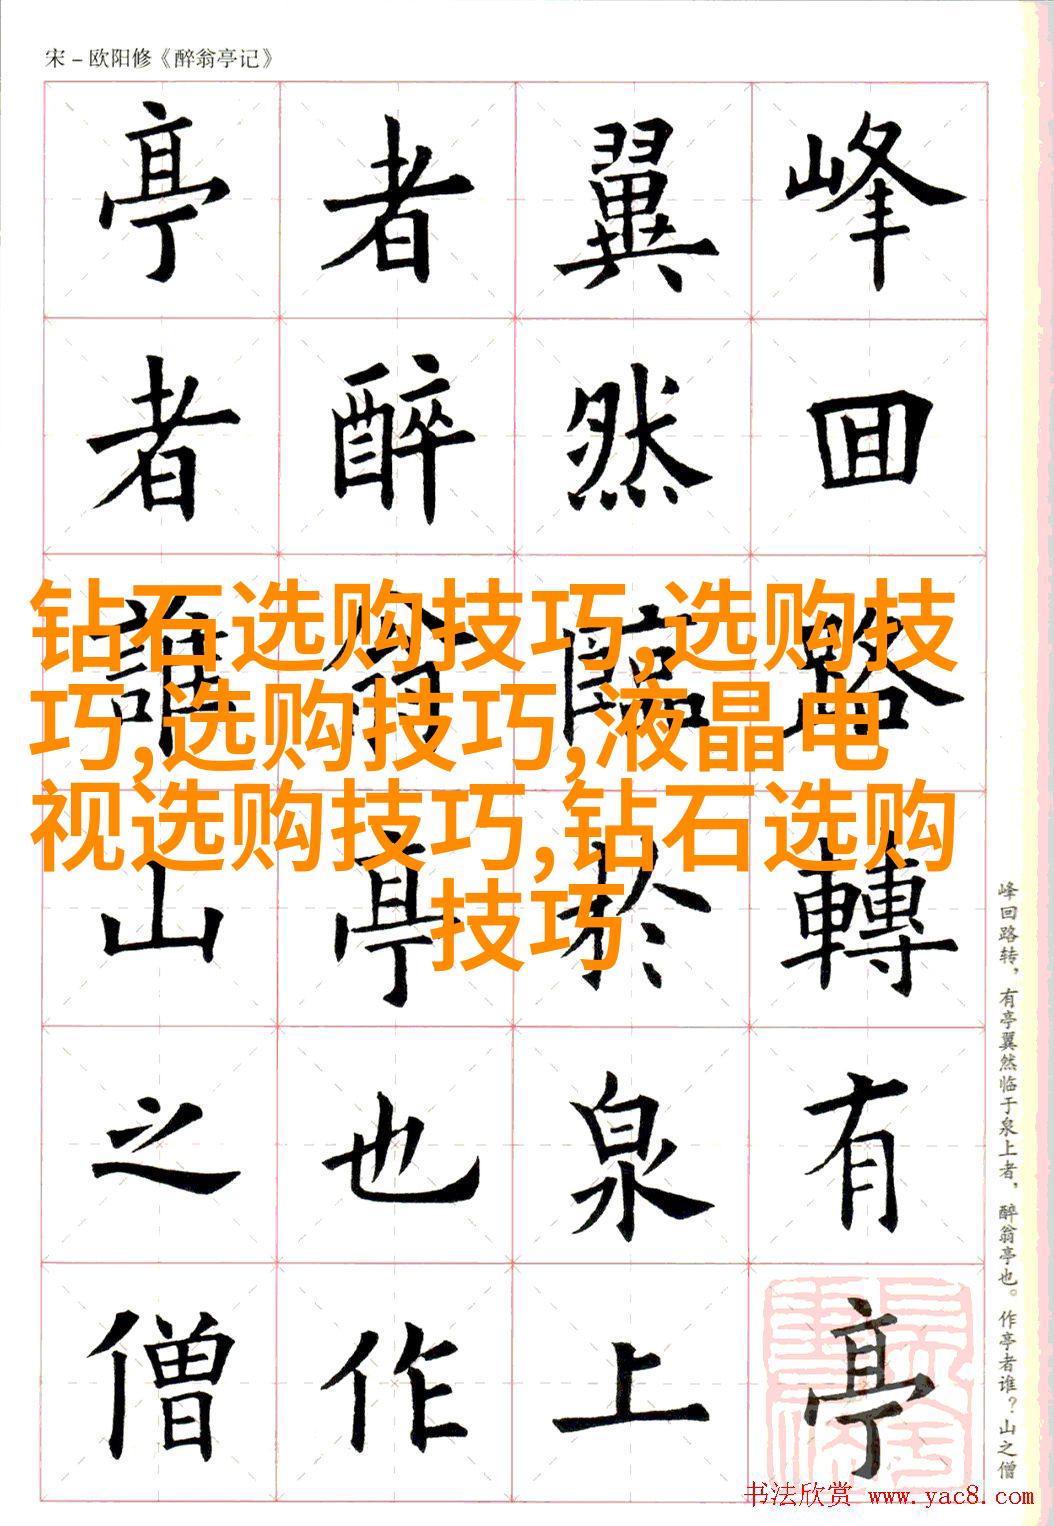 宋－欧阳修《醉翁亭记》
峰回路轉有亭
翼然臨於泉上
者醉翁亭也作
亭者誰山之僧
钻石选购技巧,选购技
巧,选购技巧,液晶电
视选购技巧,钻石选购
技巧
峰回路转，有亭翼然临于泉上者，醉翁亭也。作亭者谁？山之僧
书法欣赏 www.yac8.com